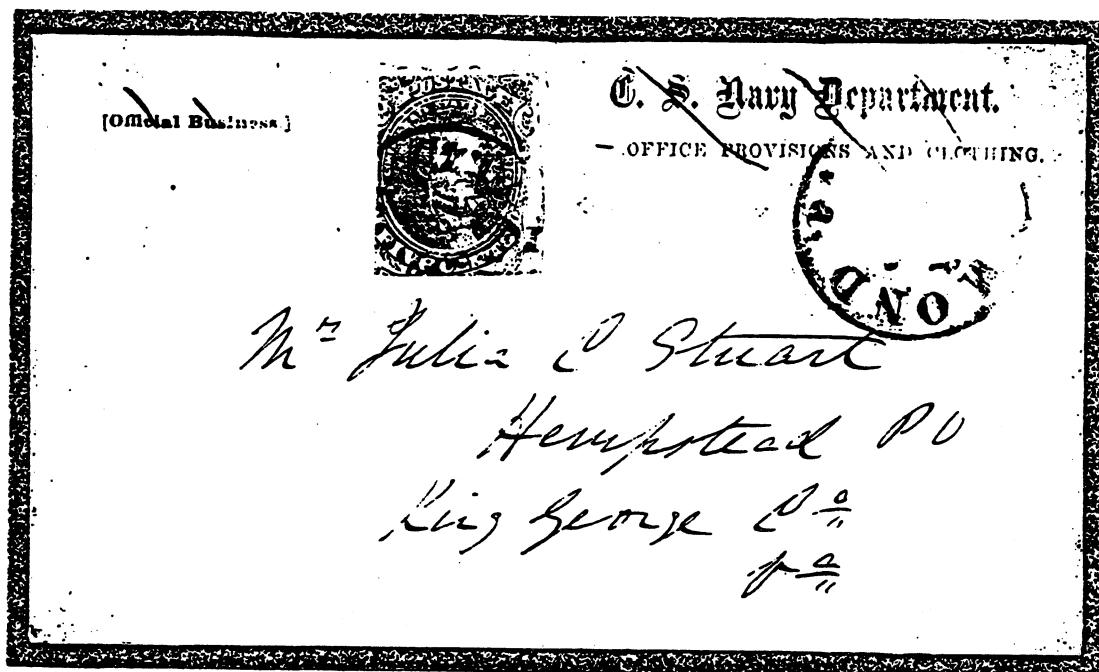 [Official Business.]
C. S. Navy Department.
OFFICE PROVISIONS AND CLOTHING.
MOND Va.
Mrs Julia C Stuart
Hempstead P O
King George Co
Va